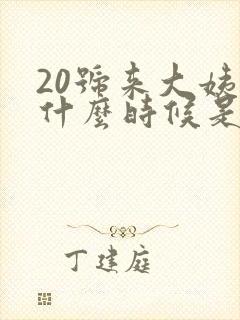 20號來大姨
什麼時候是
丁建庭